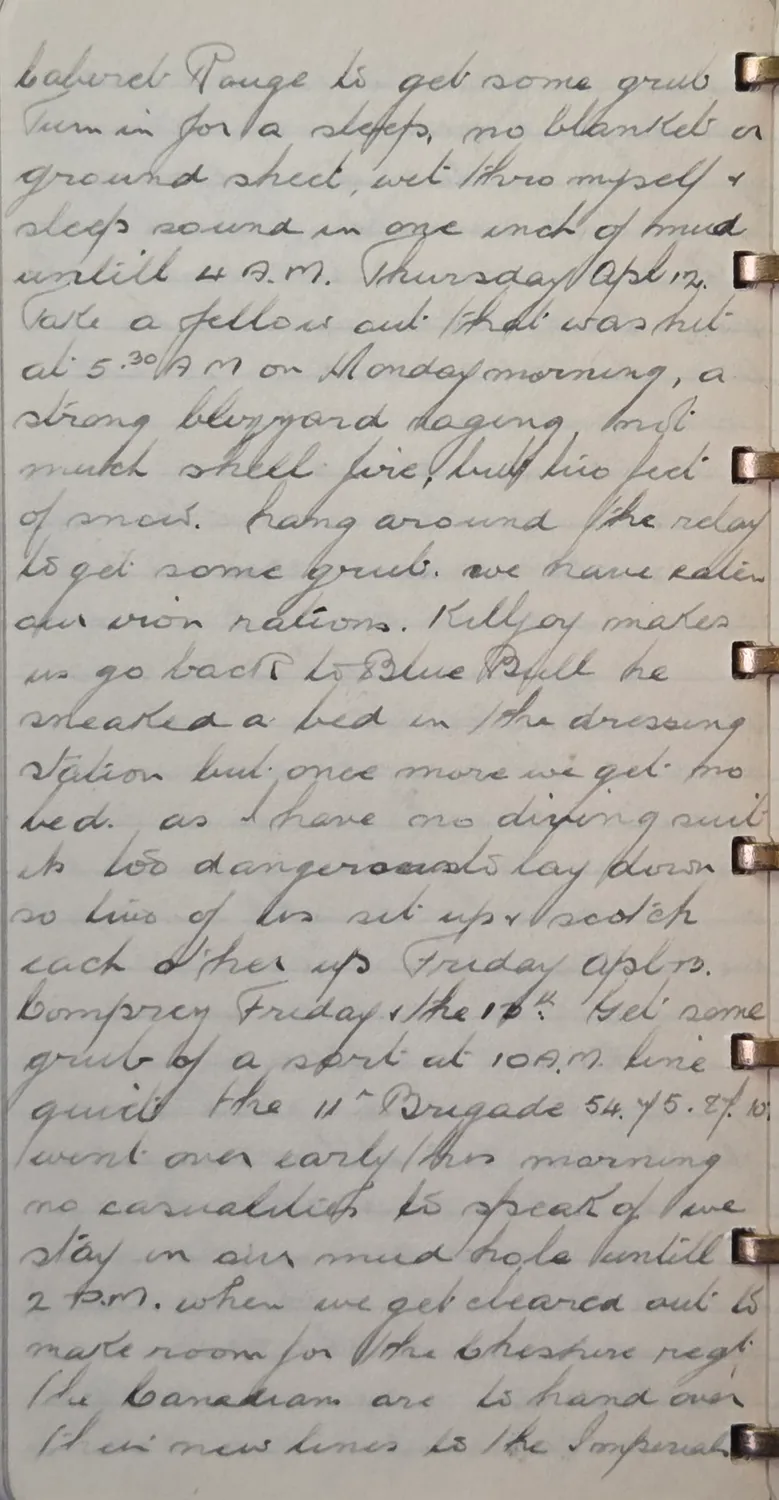 Cabaret Rouge to get some grub
Turn in for a sleep, no blanket or
ground sheet, wet thro myself &
sleep sound in one inch of mud
untill 4 A.M. Thursday Apl 12.
Take a fellow out that was hit
at 5.30 A M on Monday morning, a
strong blizzard raging, not
much shell fire, but two feet
of snow. hang around the relay
to get some grub. we have eaten
our iron rations. Killjoy makes
us go back to Blue Bull he
sneaked a bed in the dressing
station but once more we get no
bed. as I have no diving suit
its too dangerous to lay down
so two of us sit up & scotch
each other up Friday Apl 13.
Comprey Friday & the 13th. Get some
grub of a sort at 10 A.M. line
quiet the 11th Brigade 54. 75. 87. 10
went over early this morning
no casualities to speak of we
stay in our mud hole untill
2 P.M. when we get cleared out to
make room for the Cheshire regt.
the Canadians are to hand over
their new lines to the Imperials